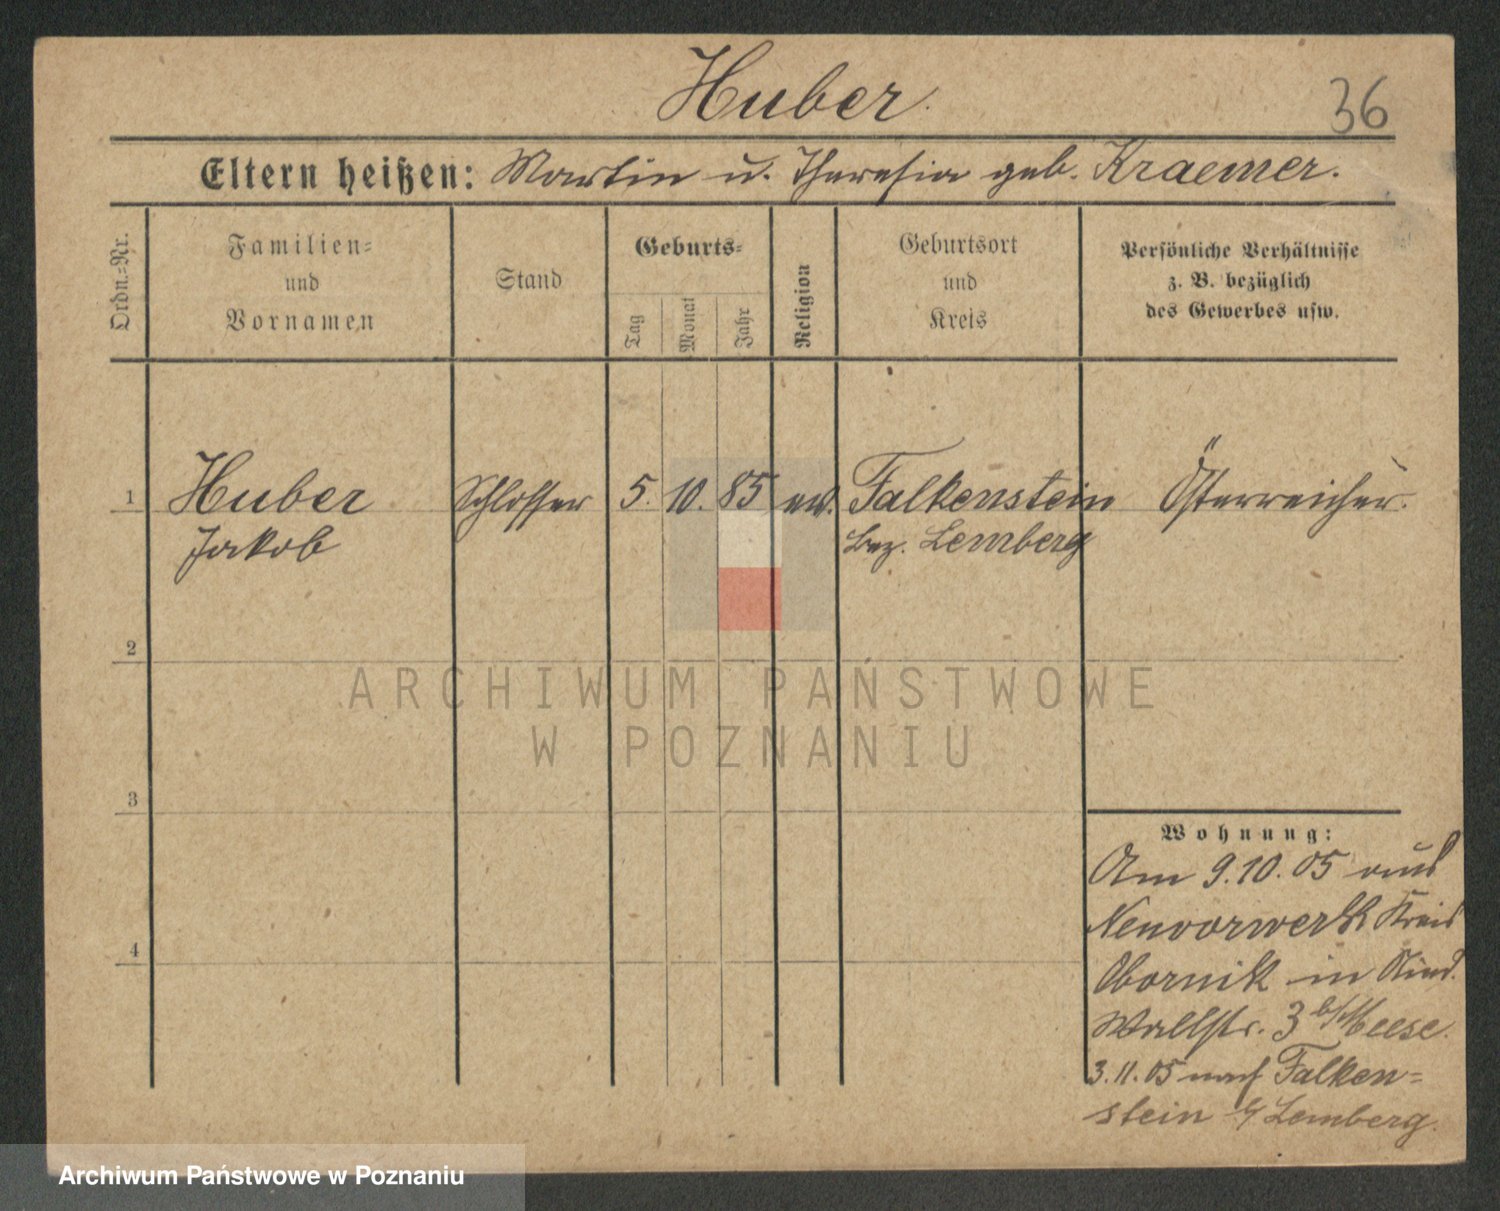 Huber.
36
Eltern heißen: Martin u. Theresia geb. Kraemer.
Ordn.=Nr.
Familien=
und
Vornamen
Stand
Geburts=
Tag
Monat
Jahr
Religion
Geburtsort
und
Kreis
Persönliche Verhältnisse
z. B. bezüglich
des Gewerbes usw.
1 Huber Schlosser 5. 10. 85 ev. Falkenstein Österreicher.
Jakob Bez. Lemberg
2
ARCHIWUM PAŃSTWOWE
W POZNANIU
3
Wohnung:
Am 9.10.05 aus
Neuvorwerk Kreis
Obornik in
4
Wallstr. 3 b/Meese.
3.11.05 nach Falken=
stein b/ Lemberg.
Archiwum Państwowe w Poznaniu